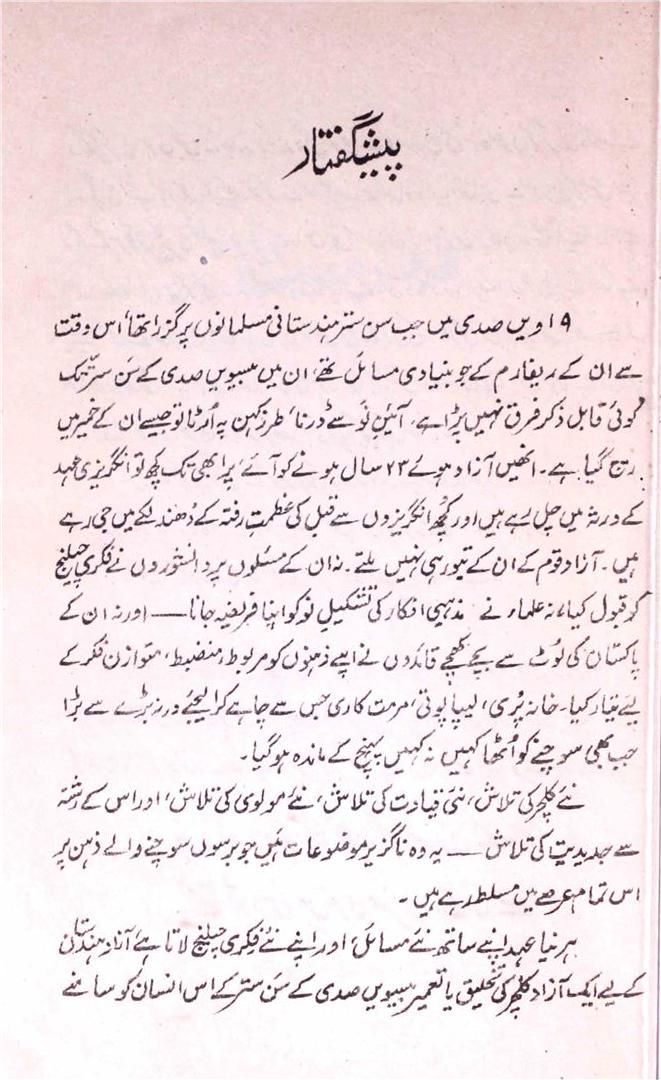 پیشگفتار
۱۹ویں صدی میں جب سن ستر ہندستانی مسلمانوں پر گزرا تھا، اس وقت
سے ان کے ریفارم کے جو بنیادی مسائل تھے، ان میں بیسویں صدی کے سَن ستر تک
کوئی قابل ذکر فرق نہیں پڑا ہے، آئینِ نَو سے ڈرنا، طرزِ کہن پہ اَڑنا تو جیسے ان کے خمیر میں
رچ گیا ہے۔ انھیں آزاد ہوئے ۲۳ سال ہونے کو آئے، پر ابھی تک کچھ تو انگریزی عہد
کے ورثہ میں چل رہے ہیں اور کچھ انگریزوں سے قبل کی عظمتِ رفتہ کے دُھندلکے میں جی رہے
ہیں۔ آزاد قوم کے ان کے تیور ہی نہیں ملتے۔ نہ ان کے مسئلوں پر دانشوروں نے فکری چیلنج
کو قبول کیا، نہ علماء نے مذہبی افکار کی تشکیلِ نو کو اپنا فریضہ جانا — اور نہ ان کے
پاکستان کی لُوٹ سے بچے کھچے قائدوں نے اپنے ذہنوں کو مربوط، منضبط، متوازن فکر کے
لیے تیار کیا۔ خانہ پُری، لیپا پوتی، مرمت کاری جس سے چاہے کرا لیجئے ورنہ بڑے سے بڑا
جب بھی سوچنے کو اُٹھا کہیں نہ کہیں پہنچ کے ماندہ ہو گیا۔
نئے کلچر کی تلاش، نئی قیادت کی تلاش، نئے مولوی کی تلاش، اور اس کے رشتہ
سے جدیدیت کی تلاش — یہ وہ ناگزیر موضوعات ہیں جو برسوں سوچنے والے ذہن پر
اس تمام عرصے میں مسلط رہے ہیں۔
ہر نیا عہد اپنے ساتھ نئے مسائل، اور اپنے نئے فکری چیلنج لاتا ہے، آزاد ہندستان
کے لیے ایک آزاد کلچر کی تخلیق یا تعمیر بیسویں صدی کے سَن ستر کے اس انسان کو سامنے